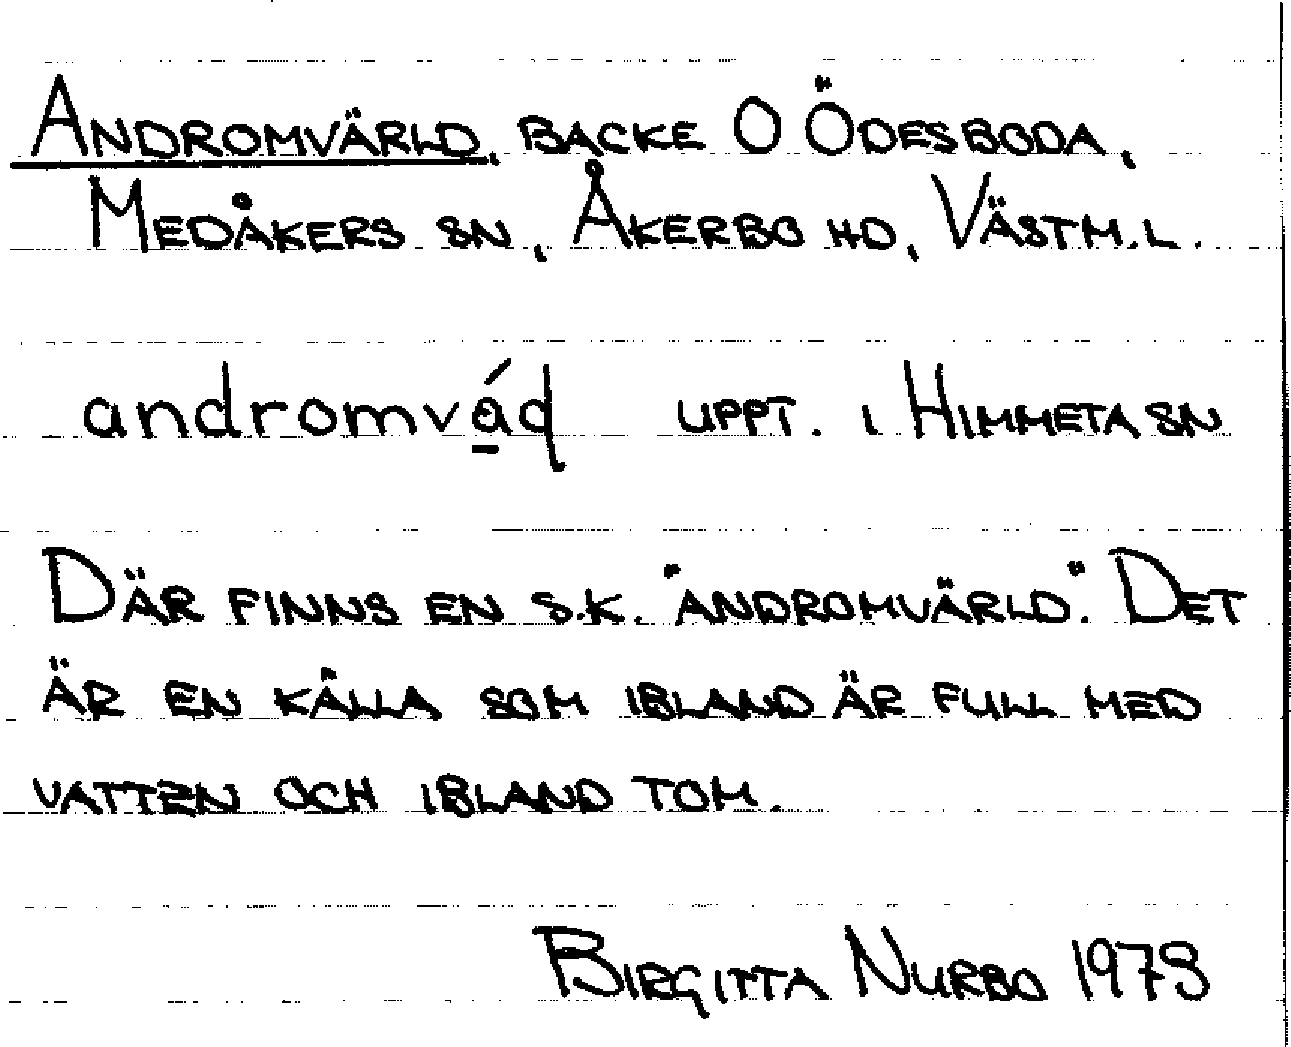 ANDROMVÄRLD, BACKE O ÖDESBODA,
MEDÅKERS SN, ÅKERBO HD, VÄSTM.L.
andromvá̱ɖ UPPT. I HIMMETA SN
DÄR FINNS EN S.K. "ANDROMVÄRLD". DET
ÄR EN KÄLLA SOM IBLAND ÄR FULL MED
VATTEN OCH IBLAND TOM.
BIRGITTA NURBO 1979